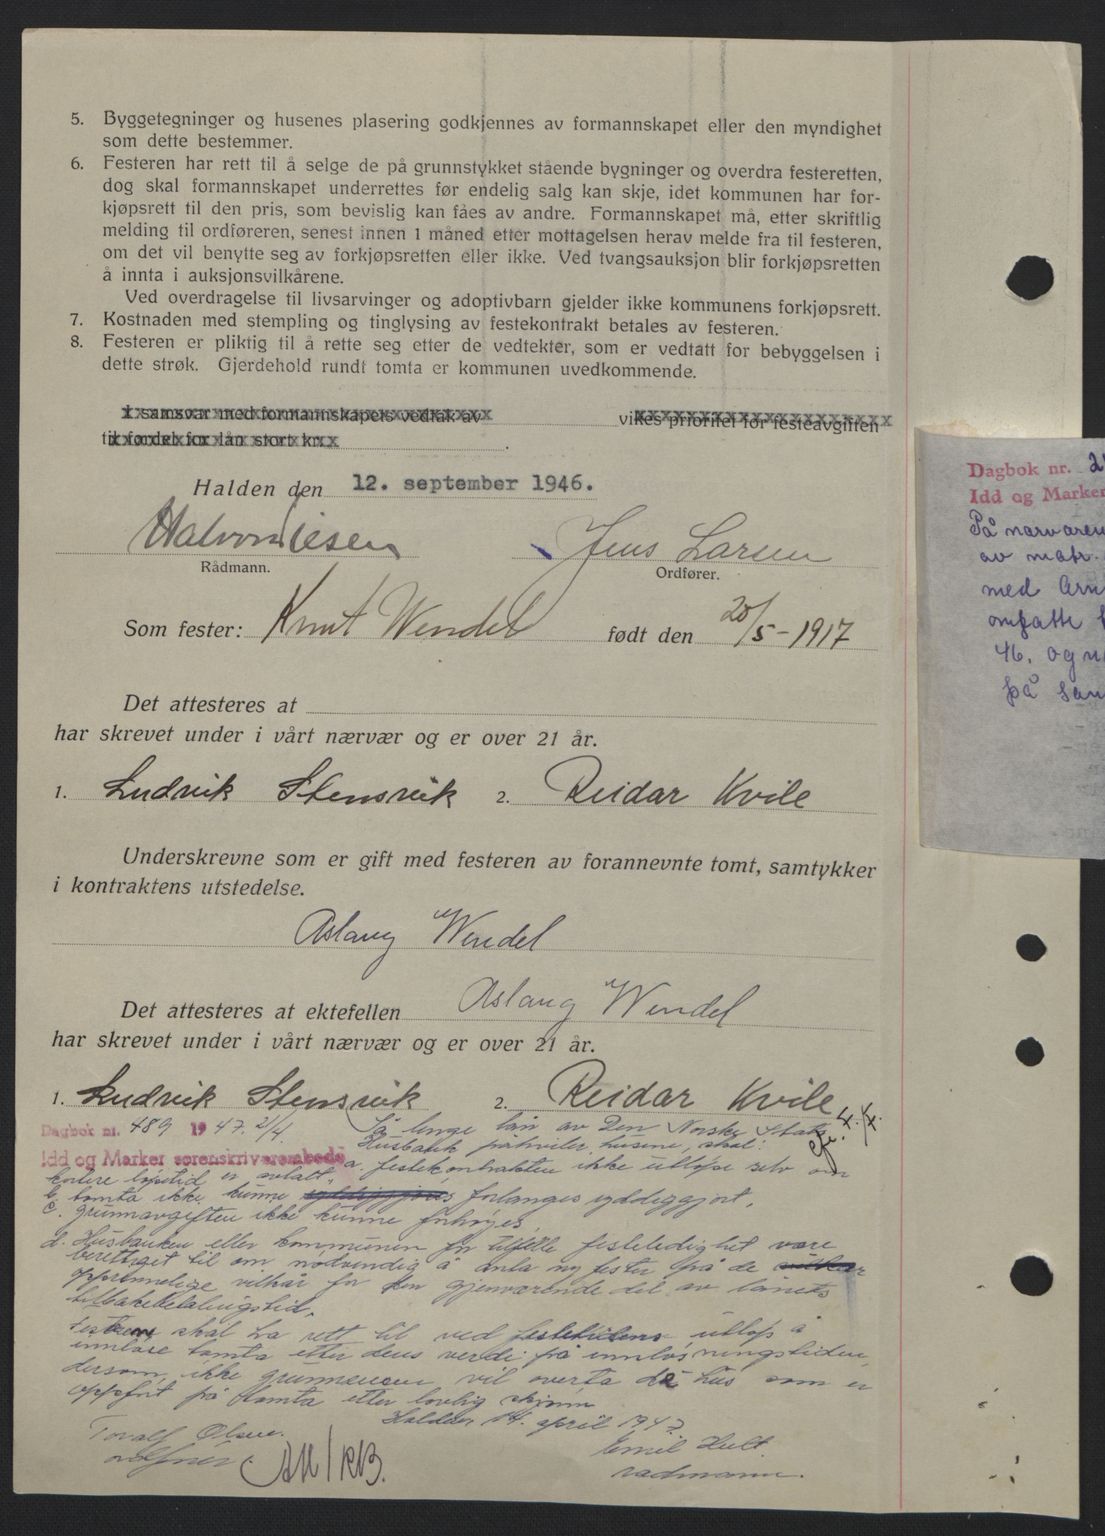 5. Byggetegninger og husenes plasering godkjennes av formannskapet eller den myndighet
som dette bestemmer.
6. Festeren har rett til å selge de på grunnstykket stående bygninger og overdra festeretten,
dog skal formannskapet underrettes før endelig salg kan skje, idet kommunen har for-
kjøpsrett til den pris, som bevislig kan fåes av andre. Formannskapet må, etter skriftlig
melding til ordføreren, senest innen 1 måned etter mottagelsen herav melde fra til festeren,
om det vil benytte seg av forkjøpsretten eller ikke. Ved tvangsauksjon blir forkjøpsretten
å innta i auksjonsvilkårene.
Ved overdragelse til livsarvinger og adoptivbarn gjelder ikke kommunens forkjøpsrett.
7. Kostnaden med stempling og tinglysing av festekontrakt betales av festeren.
8. Festeren er pliktig til å rette seg etter de vedtekter, som er vedtatt for bebyggelsen i
dette strøk. Gjerdehold rundt tomta er kommunen uvedkommende.
I samsvar med formannskapets vedtak av vikes prioritet for festeavgiften
til fordel for lån stort kr.
Halden den 12. september 1946.
Jens Larsen
Rådmann. Ordfører.
Som fester: Knut Wendel født den 20/5-1917
Det attesteres at
har skrevet under i vårt nærvær og er over 21 år.
1. Ludvik Stensvik 2. Reidar Kvile
Underskrevne som er gift med festeren av forannevnte tomt, samtykker
i kontraktens utstedelse.
Aslaug Wendel
Det attesteres at ektefellen Aslaug Wendel
har skrevet under i vårt nærvær og er over 21 år.
1. Ludvik Stensvik 2. Reidar Kvile
Dagbok nr. 489 1947 2/4
Idd og Marker sorenskriverembede
Så lenge lån av Den Norske Stats
Husbank påhviler husene, skal:
a. festekontrakten ikke utløpe selv om
kortere løpetid er avtalt.
b. tomta ikke kunne forlanges ryddiggjort.
c. grunnavgiften ikke kunne forhøyes.
d. Husbanken eller kommunen for tilfelle festeledighet være
berettiget til om nødvendig å anta ny fester på de
opprinnelige vilkår for den gjenværende del av lånets
tilbakebetalingstid.
Festeren skal ha rett til ved festetidens utløp å
innløse tomta etter dens verdi på innløsningstiden,
dersom ikke grunneieren vil overta de hus som er
oppført på tomta etter lovlig skjønn
Halden 14. april 1947.
Toralf Olsen. Emil Hult.
ordfører. rådmann.
AM/RB.
Dagbok nr. 2
Idd og Marker
På nærværen
av matr.
med Arn
omfatte
46. og
på sam